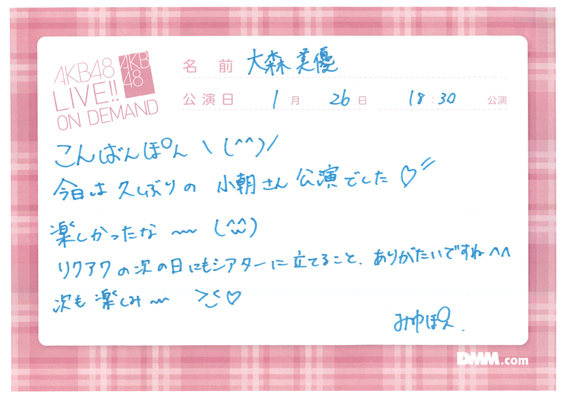 AKB48
LIVE!!
ON DEMAND
AKB
48
名前 大森美優
公演日 1月 26日 18:30 公演
こんばんぽん \(^^)/
今日は久しぶりの 小朝さん公演でした♡
楽しかったな〜 (^^)
リクアワの次の日にもシアターに立てること、ありがたいですね^^
次も楽しみ〜 >_<♡
みゆぽん.
DMM.com